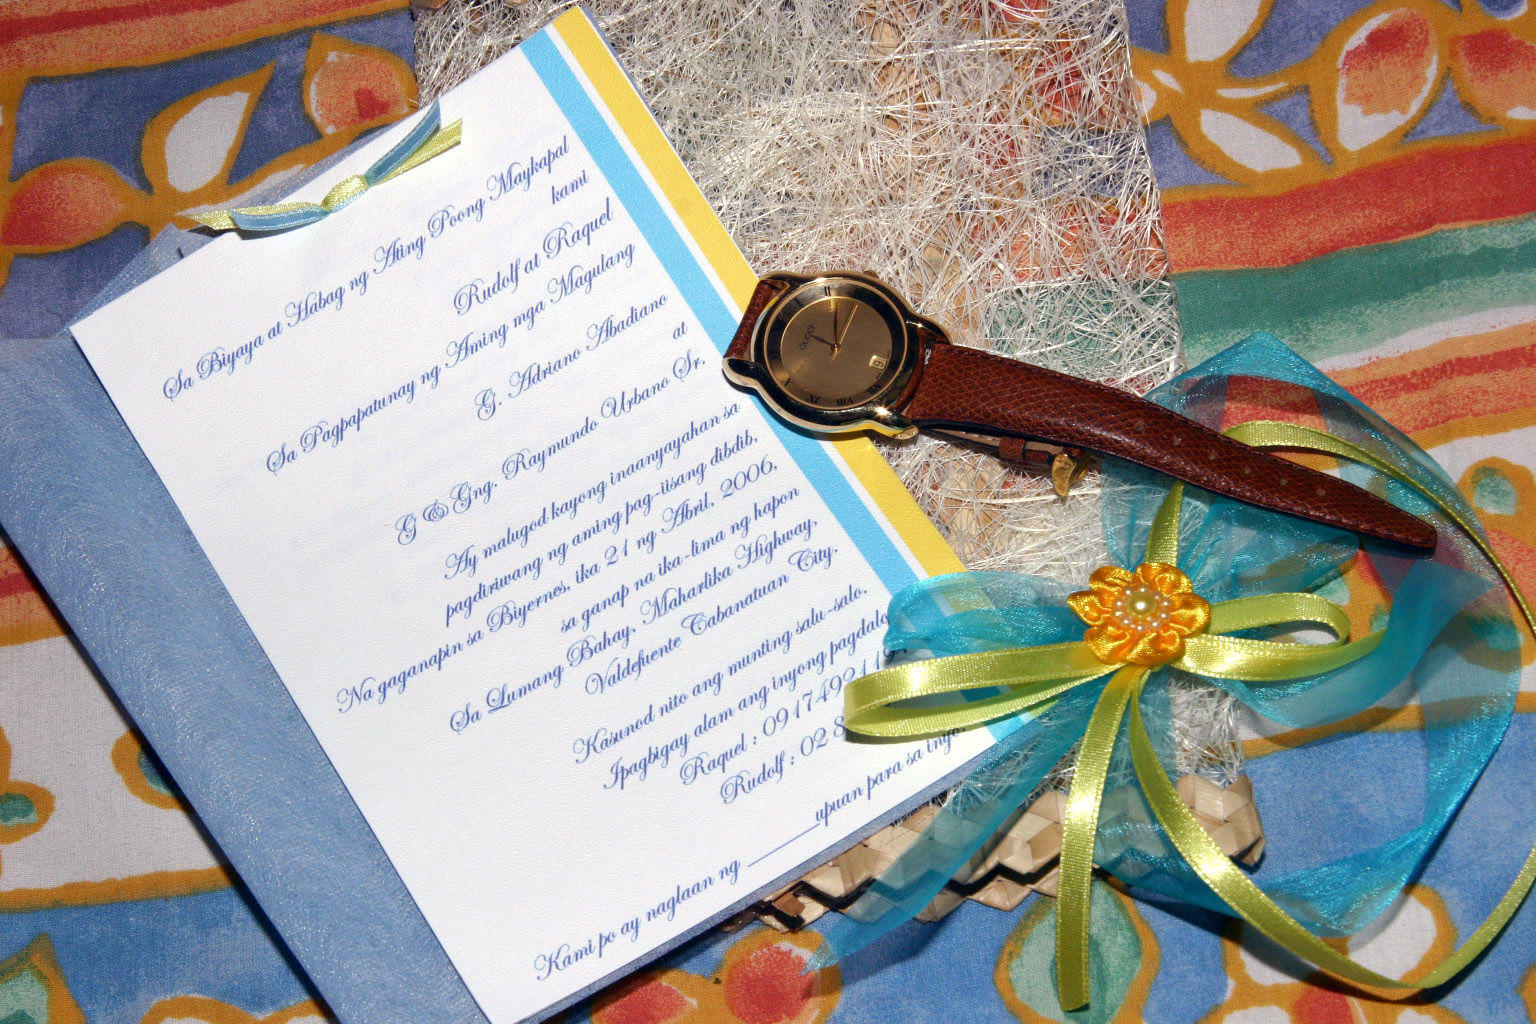 Sa Biyaya at Habag ng Ating Poong Maykapal
kami
Rudolf at Raquel
Sa Pagpapatunay ng Aming mga Magulang
G. Adriano Abadiano
at
G & Gng. Raymundo Urbano Sr.
Ay malugod kayong inaanyayahan sa
pagdiriwang ng aming pag-iisang dibdib,
Na gaganapin sa Biyernes, ika 21 ng Abril, 2006,
sa ganap na ika-lima ng hapon
Sa Lumang Bahay, Maharlika Highway,
Valdefuente Cabanatuan City.
Kasunod nito ang munting salu-salo.
Ipagbigay alam ang inyong pagdalo
Raquel :
Rudolf : 02 8
Kami po ay naglaan ng ________upuan para sa inyo.
GUCCI